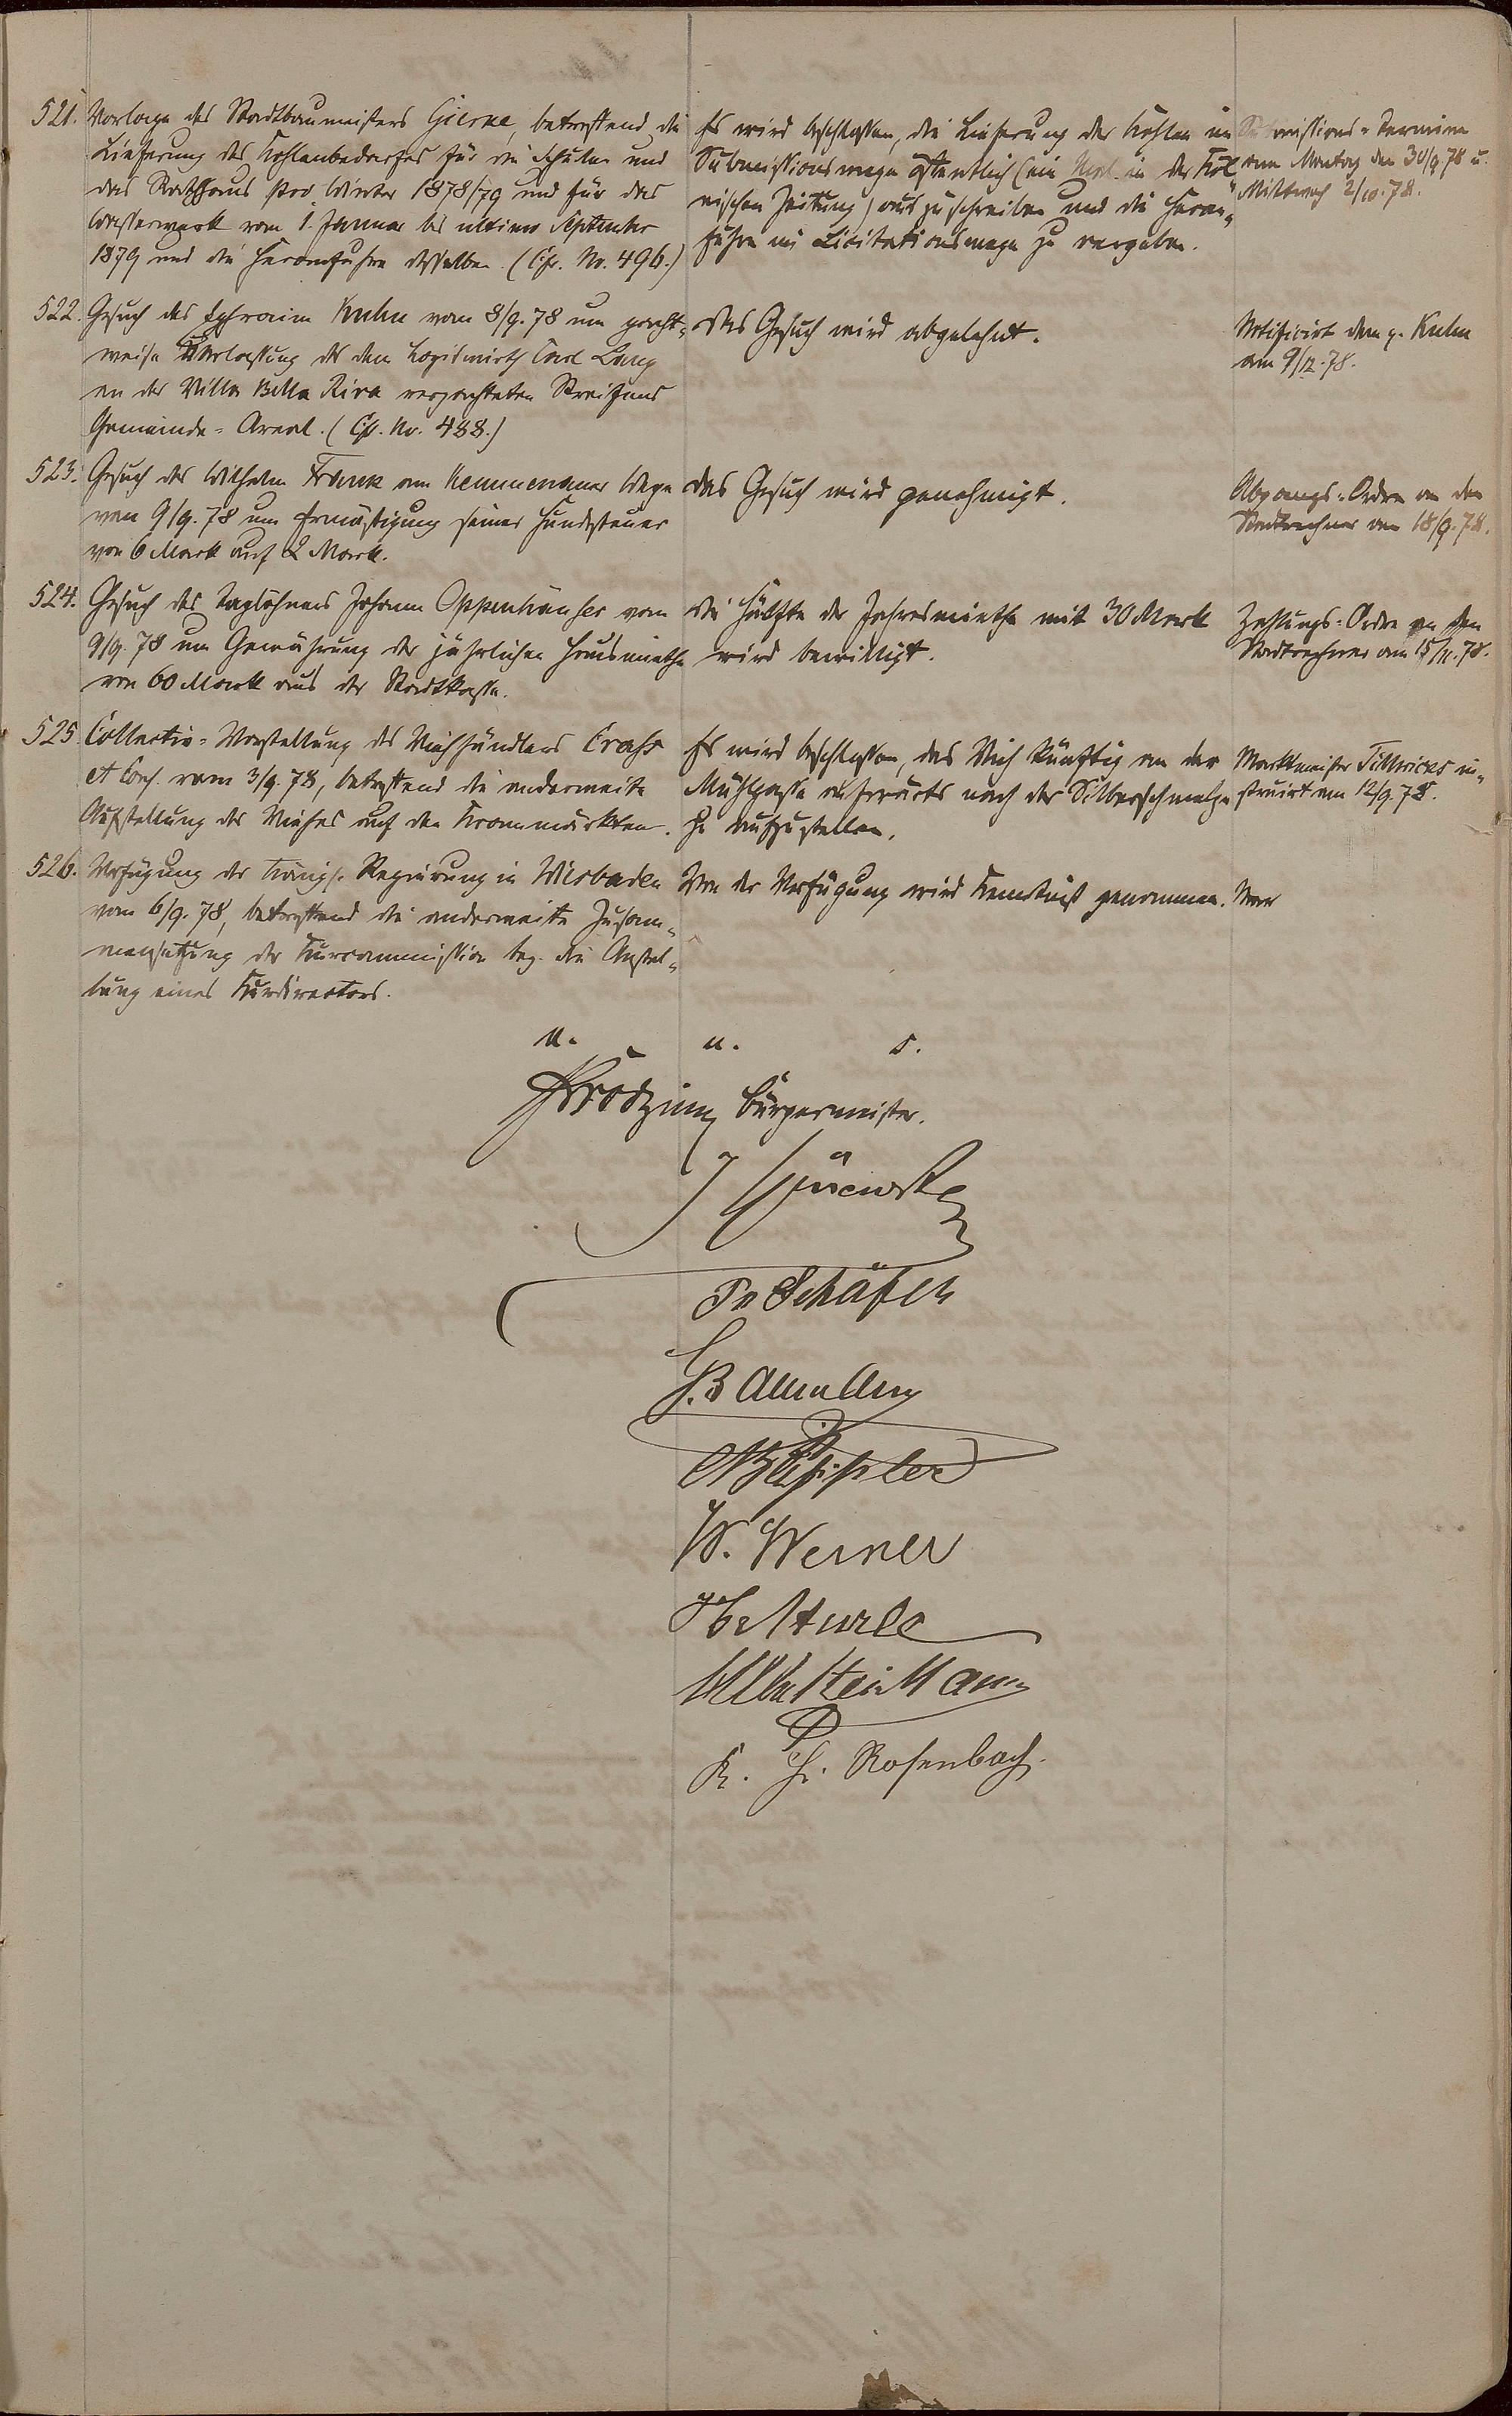 521. Vorlage des Stadtbaumeisters Gierke, betreffend die
Lieferung des Kohlenbedarfes für die Schulen und
das Rathhaus pro Winter 1878/79 und für das
Wasserwerk vom 1. Januar bis ultimo September
1879 und die Heranfuhre desselben. (Cfr. No. 496.)
Es wird beschlossen, die Lieferung der Kohlen im
Submissionswege öffentlich (ein Mal in der Köl
nischen Zeitung) auszuschreiben und die Heran„
fuhre im Licitationswege zu vergeben.
Submissions-Termine
am Montag den 30/9 78 u.
Mittwoch 2/10.78.
522. Gesuch des Ephraim Kuhn vom 8/9.78 um pacht„
weise Überlassung des dem Logiswirth Carl Lang
an der Villa Bella Riva verpachteten Streifens
Gemeinde-Areal. (Cfr. No. 488.)
Das Gesuch wird abgelehnt.
Notificirt dem p. Kuhn
am 9/12.78.
523. Gesuch des Wilhelm Frank am Kemmenauer Wege
vom 9/9.78 um Ermäßigung seiner Hundesteuer
von 6 Mark auf 2 Mark.
Das Gesuch wird genehmigt.
Abgangs-Ordre an den
Stadtrechner am 18/9.78.
524. Gesuch des Taglöhners Johann Oppenhäuser vom
9/9.78 um Gewährung der jährlichen Hausmiethe
von 60 Mark aus der Stadtkasse.
Die Hälfte der Jahresmiethe mit 30 Mark
wird bewilligt.
Zahlungs-Ordre an den
Stadtrechner am 15/11.78.
525. Collectiv-Vorstellung des Viehhändlers
et Cons. vom 3/9.78, betreffend die anderweite
Aufstellung des Viehes auf den Krammärkten.
Es wird beschlossen, das Vieh künftig von der
Mühlgasse aufwärts nach der Silberschmelze
hin aufzustellen.
Marktmeister in„
struirt am 12/9.78.
526. Verfügung der Königl. Regierung in Wiesbaden
vom 6/9.78, betreffend die anderweite Zusam„
mensetzung der Kurcommission bez. die Anstel„
lung eines Kurdirectors.
Von der Verfügung wird Kenntniß genommen.
u. u. s.
Bürgermeister.
Schäfer
W. Werner
K. Rosenbach.